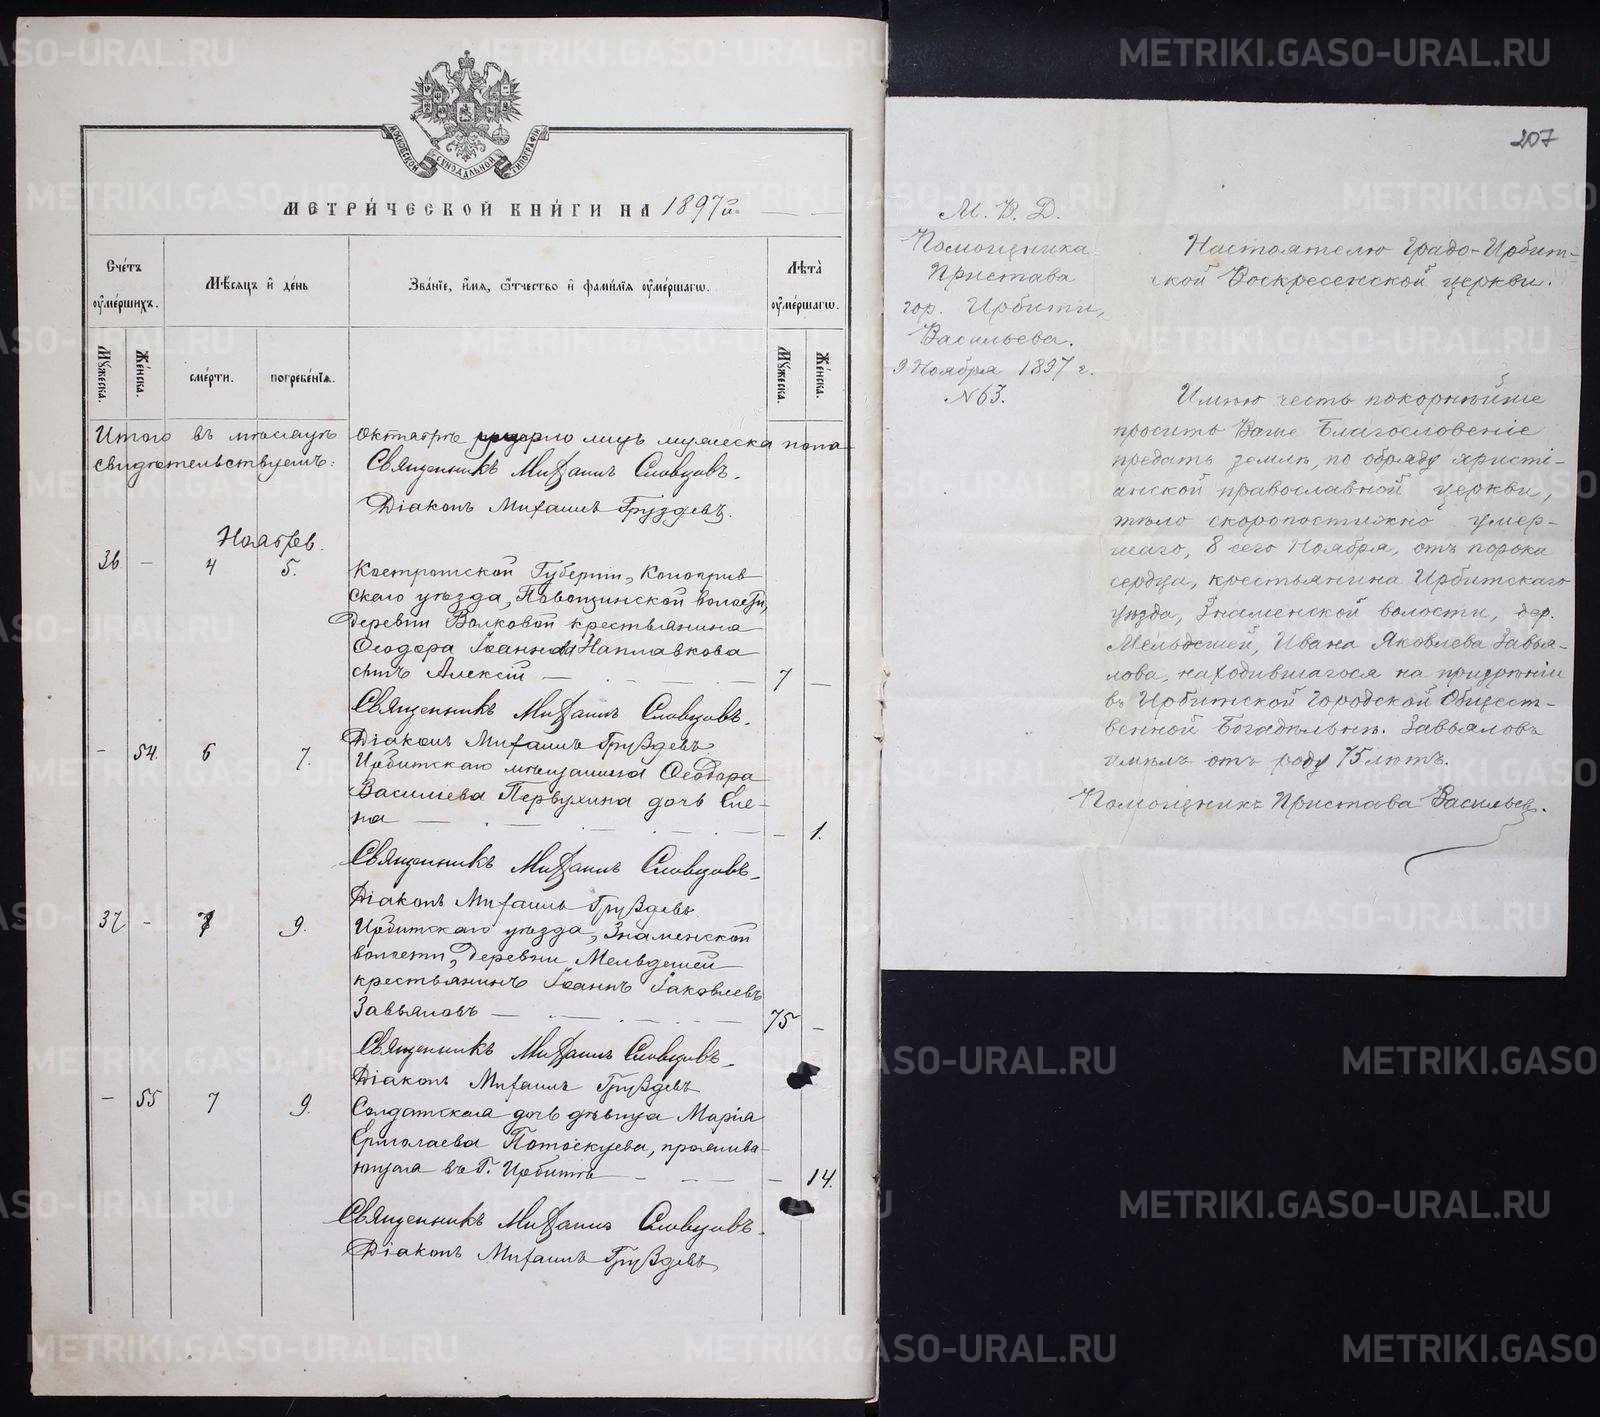 МОСКОВСКОЙ СѴНОДАЛЬНОЙ ТИПОГРАФІИ
МЕТРИ́ЧЕСКОЙ КНИ́ГИ НА 1897 г.
Сче́тъ ᲂу҆ме́ршихъ.
Мѣ́сяцъ и҆ де́нь
Зва́нїе, и҆́мѧ, ѻ҆́тчество и҆ фами́лїѧ ᲂу҆ме́ршагѡ.
Лѣ́та ᲂу҆ме́ршагѡ.
Мꙋжеска.
Же́нска.
сме́рти.
погребе́нїѧ.
Мꙋжеска.
Же́нска.
Итого въ мѣсяцѣ Октябрѣ умерло лицъ мужеска пола
свидѣтельствуемъ:
Священникъ Михаилъ Словцовъ.
Діаконъ Михаилъ Груздевъ.
Ноябрь.
36 - 4 5. Костромской Губерніи,
скаго уѣзда, волости,
деревни Волковой крестьянина
Ѳеодора Іоаннова Наплавкова
сынъ Алексій — 7 —
Священникъ Михаилъ Словцовъ.
Діаконъ Михаилъ Груздевъ.
- 54. 6 7. Ирбитскаго мѣщанина Ѳеодора
Василіева Первухина дочь Еле-
на — - 1.
Священникъ Михаилъ Словцовъ.
Діаконъ Михаилъ Груздевъ.
37 - 9. Ирбитскаго уѣзда, Знаменской
волости, деревни Мельдешей
крестьянинъ Іоаннъ Іаковлевъ
Завьяловъ — 75 -
Священникъ Михаилъ Словцовъ.
Діаконъ Михаилъ Груздевъ
- 55 7 9. Солдатская дочь дѣвица Марія
Ермолаева Потоскуева, прожива-
ющая въ Г. Ирбитѣ — - 14.
Священникъ Михаилъ Словцовъ.
Діаконъ Михаилъ Груздевъ
207
М. В. Д.
Помощника
Пристава
гор. Ирбити,
Васильева.
9 Ноября 1897 г.
№63.
Настоятелю Градо-Ирбит-
ской Воскресенской церкви.
Имѣю честь покорнѣйше
просить Ваше Благословеніе
предать землѣ, по обряду христі-
анской православной церкви,
тѣло скоропостижно умер-
шаго, 8 сего Ноября, отъ порока
сердца, крестьянина Ирбитскаго
уѣзда, Знаменской волости, дер.
Мельдешей, Ивана Яковлева Завья-
лова, находившагося на призрѣніи
въ Ирбитской Городской Общест-
венной Богадѣльнѣ. Завьяловъ
имѣлъ отъ роду 75 лѣтъ.
Помощникъ Пристава Васильев.
METRIKI.GASO-URAL.RU